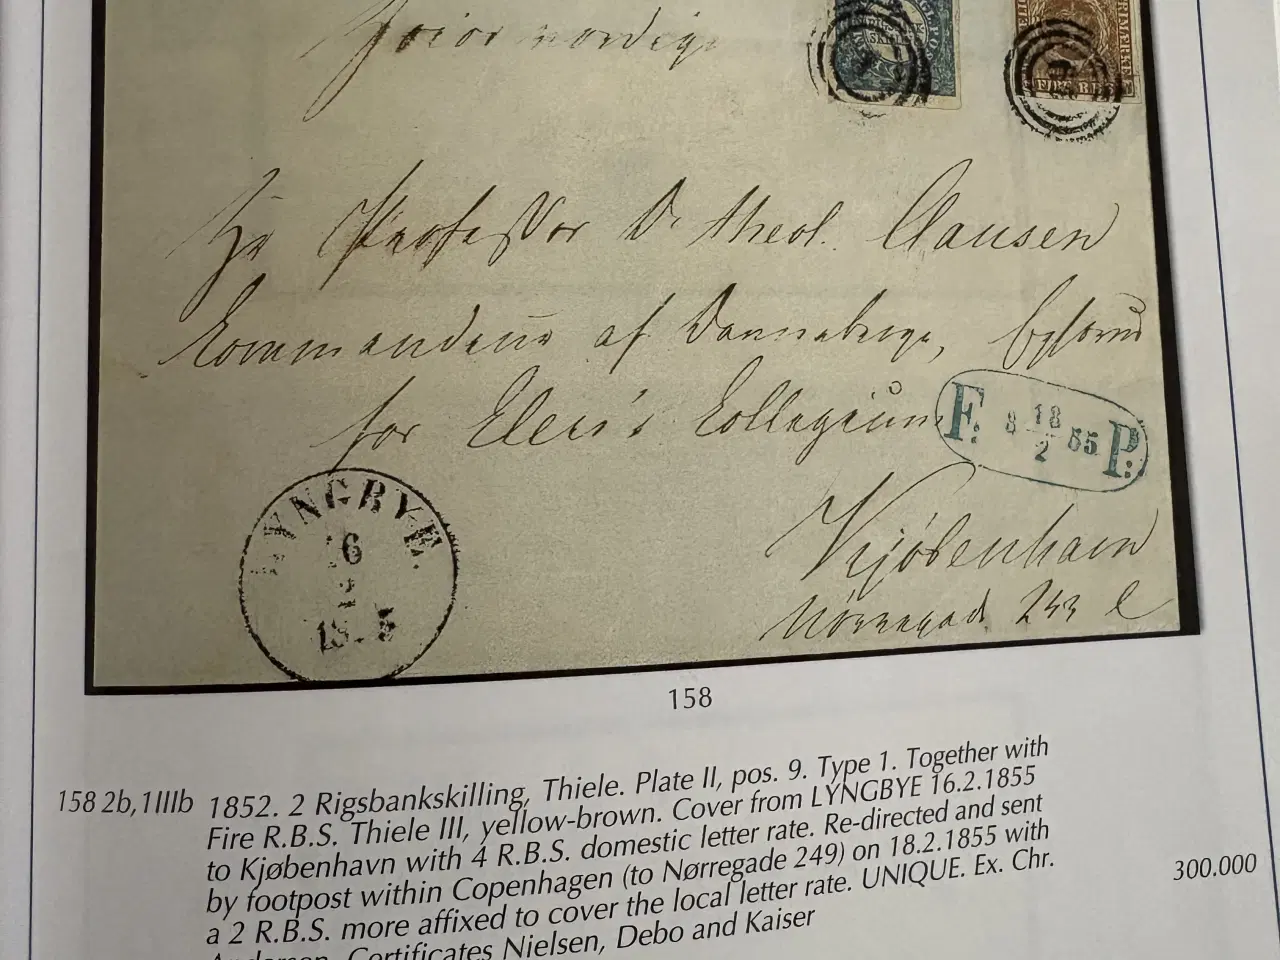 Professor Dr theol. Clausen
Kommandeur af Dannebroge,
for Elers's Collegium
F: 8 18/2 55 P:
LYNGBYE.
16
2
Kjøbenhavn
Nørregade
158
158 2b, 1IIIb 1852. 2 Rigsbankskilling, Thiele. Plate II, pos. 9. Type 1. Together with
Fire R.B.S. Thiele III, yellow-brown. Cover from LYNGBYE 16.2.1855
to Kjøbenhavn with 4 R.B.S. domestic letter rate. Re-directed and sent
by footpost within Copenhagen (to Nørregade 249) on 18.2.1855 with
a 2 R.B.S. more affixed to cover the local letter rate. UNIQUE. Ex. Chr. 300.000
Andersen. Certificates Nielsen, Debo and Kaiser